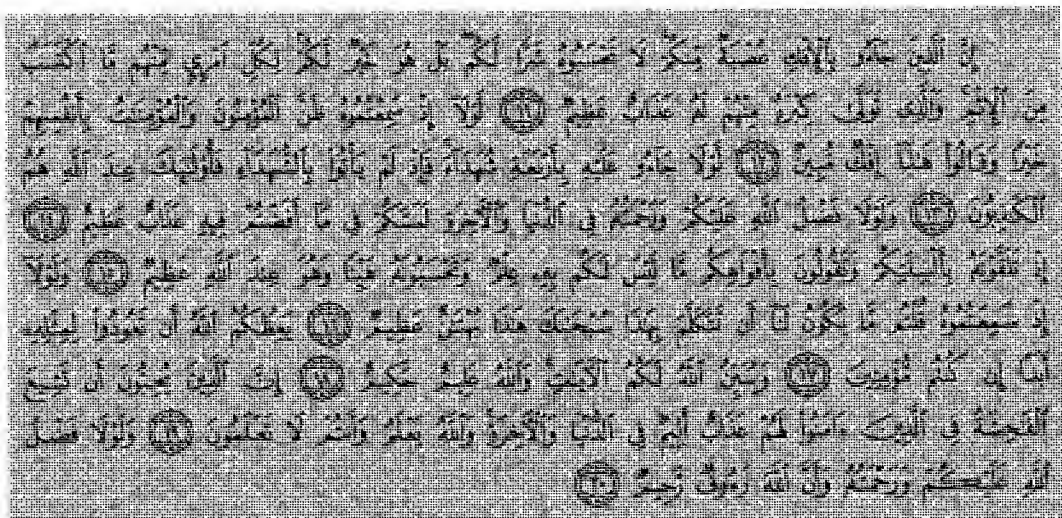 إِنَّ ٱلَّذِينَ جَآءُو بِٱلْإِفْكِ عُصْبَةٌ مِّنكُمْ لَا تَحْسَبُوهُ شَرًّا لَّكُم بَلْ هُوَ خَيْرٌ لَّكُمْ لِكُلِّ ٱمْرِئٍ مِّنْهُم مَّا ٱكْتَسَبَ
مِنَ ٱلْإِثْمِ وَٱلَّذِى تَوَلَّىٰ كِبْرَهُۥ مِنْهُمْ لَهُۥ عَذَابٌ عَظِيمٌ ﴿١١﴾ لَّوْلَآ إِذْ سَمِعْتُمُوهُ ظَنَّ ٱلْمُؤْمِنُونَ وَٱلْمُؤْمِنَٰتُ بِأَنفُسِهِمْ
خَيْرًا وَقَالُوا۟ هَٰذَآ إِفْكٌ مُّبِينٌ ﴿١٢﴾ لَّوْلَا جَآءُو عَلَيْهِ بِأَرْبَعَةِ شُهَدَآءَ فَإِذْ لَمْ يَأْتُوا۟ بِٱلشُّهَدَآءِ فَأُو۟لَٰٓئِكَ عِندَ ٱللَّهِ هُمُ
ٱلْكَٰذِبُونَ ﴿١٣﴾ وَلَوْلَا فَضْلُ ٱللَّهِ عَلَيْكُمْ وَرَحْمَتُهُۥ فِى ٱلدُّنْيَا وَٱلْءَاخِرَةِ لَمَسَّكُمْ فِى مَآ أَفَضْتُمْ فِيهِ عَذَابٌ عَظِيمٌ ﴿١٤﴾
إِذْ تَلَقَّوْنَهُۥ بِأَلْسِنَتِكُمْ وَتَقُولُونَ بِأَفْوَاهِكُم مَّا لَيْسَ لَكُم بِهِۦ عِلْمٌ وَتَحْسَبُونَهُۥ هَيِّنًا وَهُوَ عِندَ ٱللَّهِ عَظِيمٌ ﴿١٥﴾ وَلَوْلَآ
إِذْ سَمِعْتُمُوهُ قُلْتُم مَّا يَكُونُ لَنَآ أَن نَّتَكَلَّمَ بِهَٰذَا سُبْحَٰنَكَ هَٰذَا بُهْتَٰنٌ عَظِيمٌ ﴿١٦﴾ يَعِظُكُمُ ٱللَّهُ أَن تَعُودُوا۟ لِمِثْلِهِۦٓ
أَبَدًا إِن كُنتُم مُّؤْمِنِينَ ﴿١٧﴾ وَيُبَيِّنُ ٱللَّهُ لَكُمُ ٱلْءَايَٰتِ وَٱللَّهُ عَلِيمٌ حَكِيمٌ ﴿١٨﴾ إِنَّ ٱلَّذِينَ يُحِبُّونَ أَن تَشِيعَ
ٱلْفَٰحِشَةُ فِى ٱلَّذِينَ ءَامَنُوا۟ لَهُمْ عَذَابٌ أَلِيمٌ فِى ٱلدُّنْيَا وَٱلْءَاخِرَةِ وَٱللَّهُ يَعْلَمُ وَأَنتُمْ لَا تَعْلَمُونَ ﴿١٩﴾ وَلَوْلَا فَضْلُ
ٱللَّهِ عَلَيْكُمْ وَرَحْمَتُهُۥ وَأَنَّ ٱللَّهَ رَءُوفٌ رَّحِيمٌ ﴿٢٠﴾